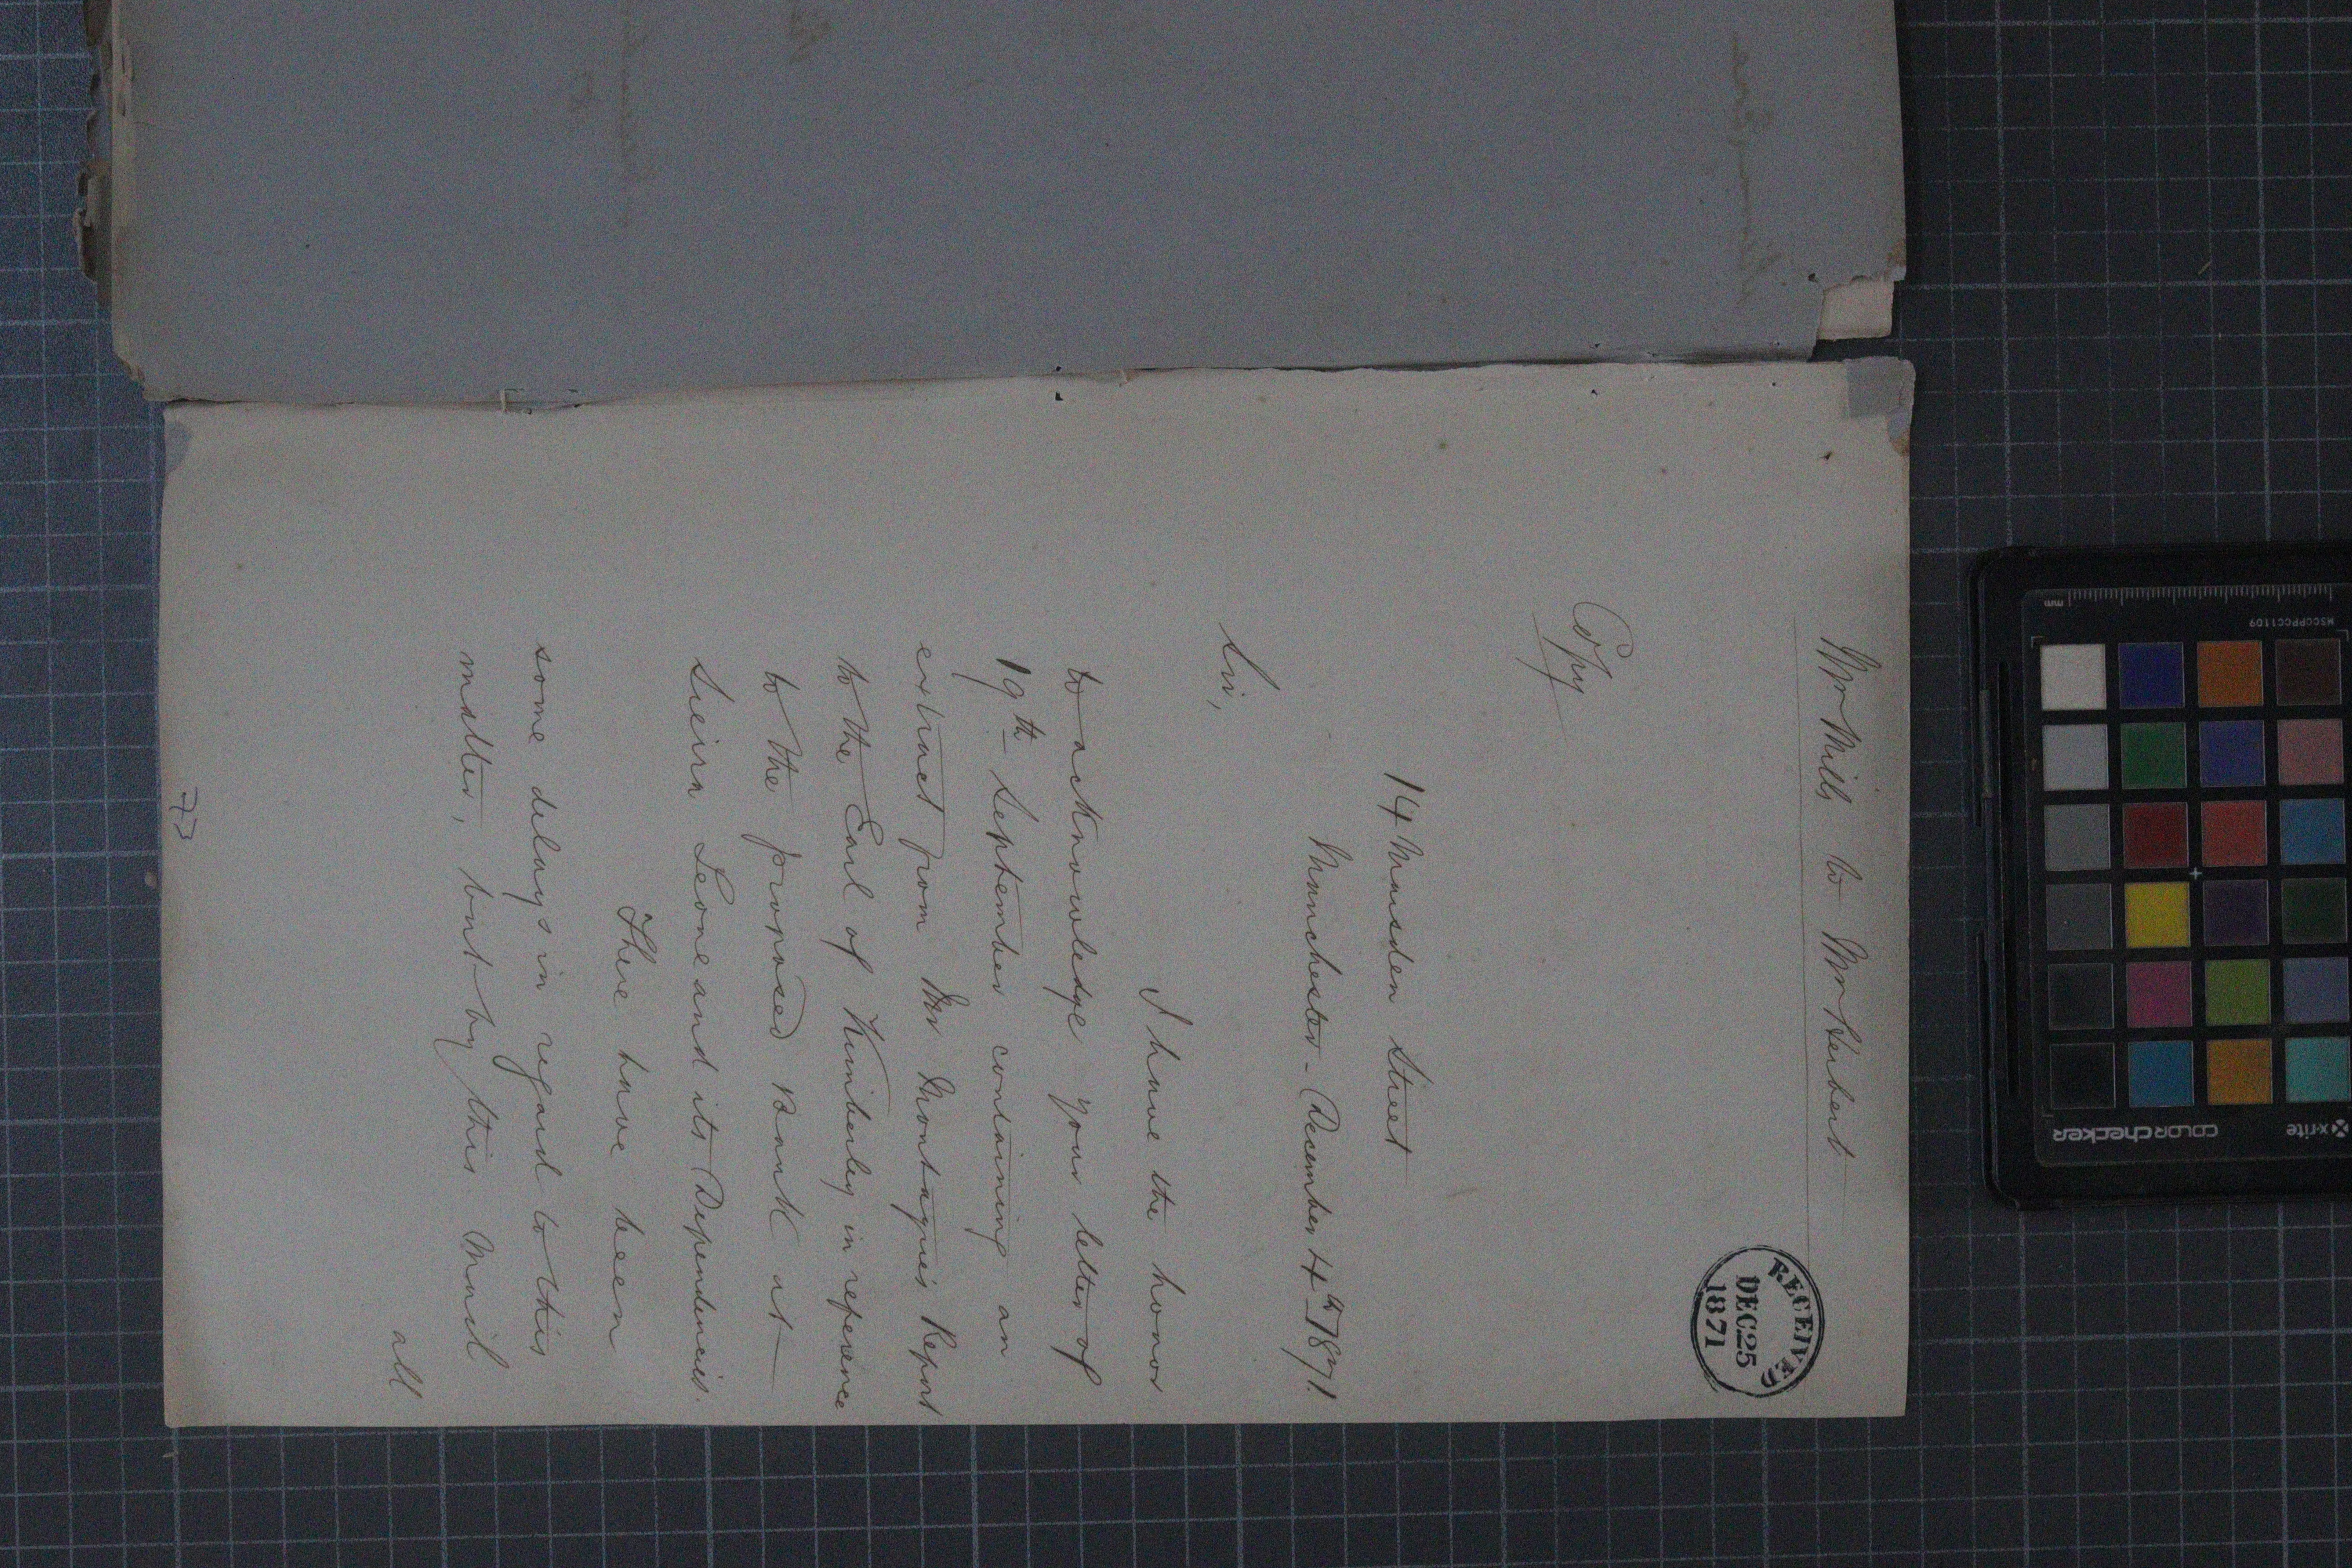 Mr Mills to Mr Herbert
RECEIVED
DEC 25
1871
Copy
14 Marsden Street
Manchester - December 4th 1871.
Sir,
I have the honor
to acknowledge your letter of
19th September containing an
extract from Mr Montagnes Report
to the Earl of Kimberley in reference
to the proposed Bank at
Sierra Leone and its Dependencies.
There have been
some delays in regard to this
matter, but by this Mail
all
73
x-rite
colorchecker
MSCCPPCC1109
mm